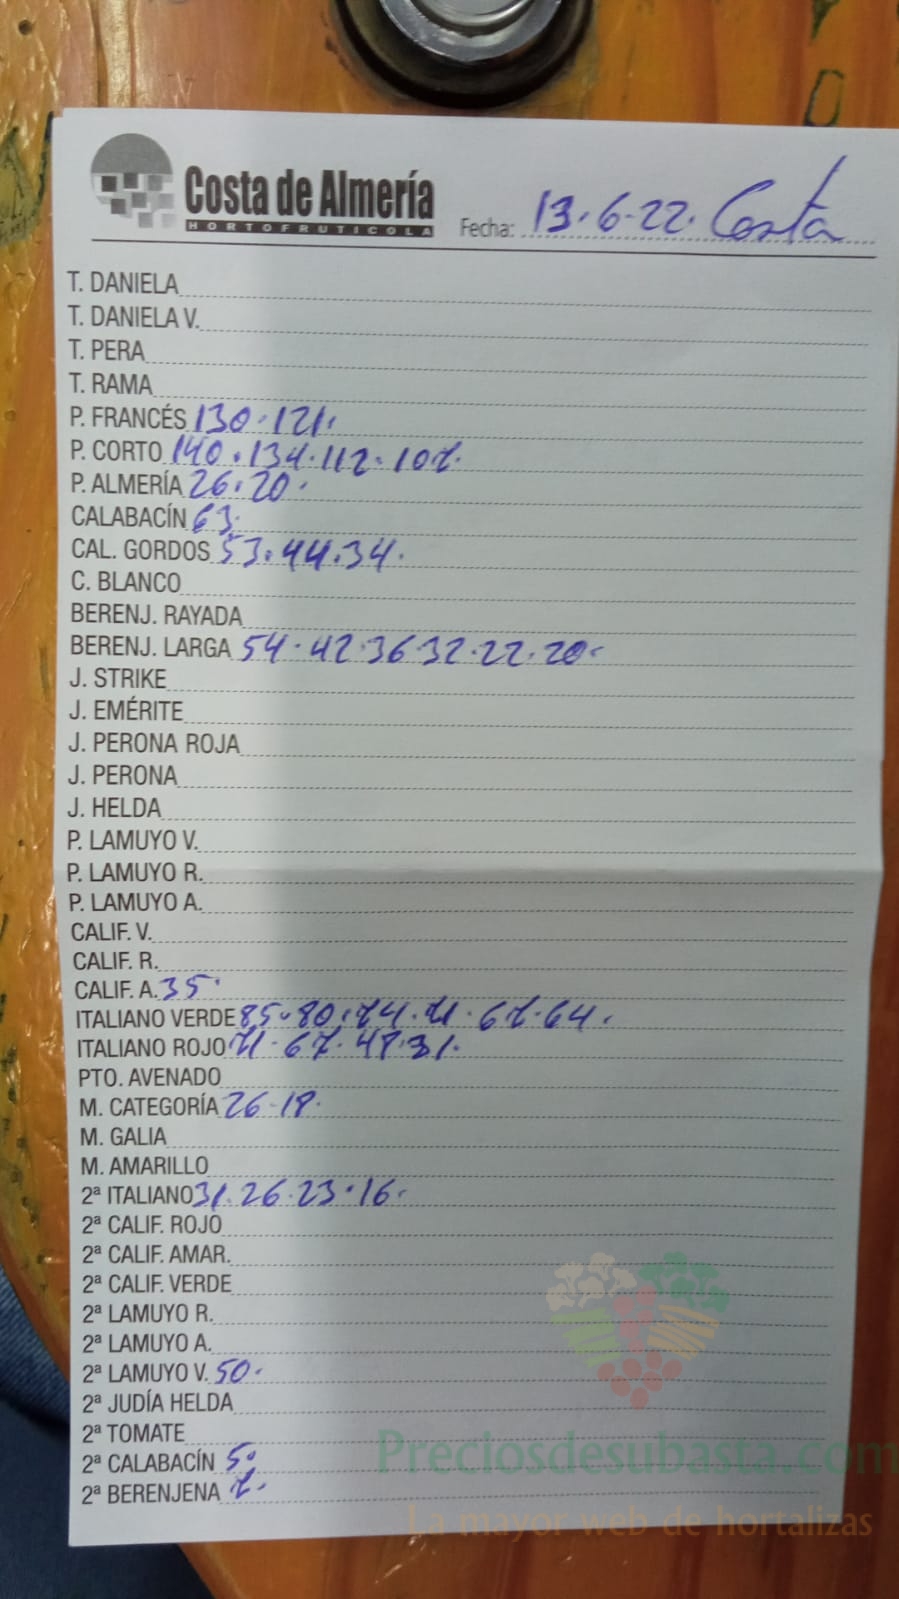 Costa de Almería
HORTOFRUTICOLA
Fecha: 13.6.22. Costa
T. DANIELA
T. DANIELA V.
T. PERA
T. RAMA
P. FRANCÉS 130.121.
P. CORTO 140.134.112.107.
P. ALMERÍA 26.20.
CALABACÍN 63.
CAL. GORDOS 53.44.34.
C. BLANCO
BERENJ. RAYADA
BERENJ. LARGA 54.42.36.32.22.20.
J. STRIKE
J. EMÉRITE
J. PERONA ROJA
J. PERONA
J. HELDA
P. LAMUYO V.
P. LAMUYO R.
P. LAMUYO A.
CALIF. V.
CALIF. R.
CALIF. A. 35.
ITALIANO VERDE 85.80.74.71.67.64.
ITALIANO ROJO 71.67.48.31.
PTO. AVENADO
M. CATEGORÍA 26.18.
M. GALIA
M. AMARILLO
2ª ITALIANO 31.26.23.16.
2ª CALIF. ROJO
2ª CALIF. AMAR.
2ª CALIF. VERDE
2ª LAMUYO R.
2ª LAMUYO A.
2ª LAMUYO V. 50.
2ª JUDÍA HELDA
2ª TOMATE
2ª CALABACÍN 5.
2ª BERENJENA 7.
Preciosdesubasta.com
La mayor web de hortalizas